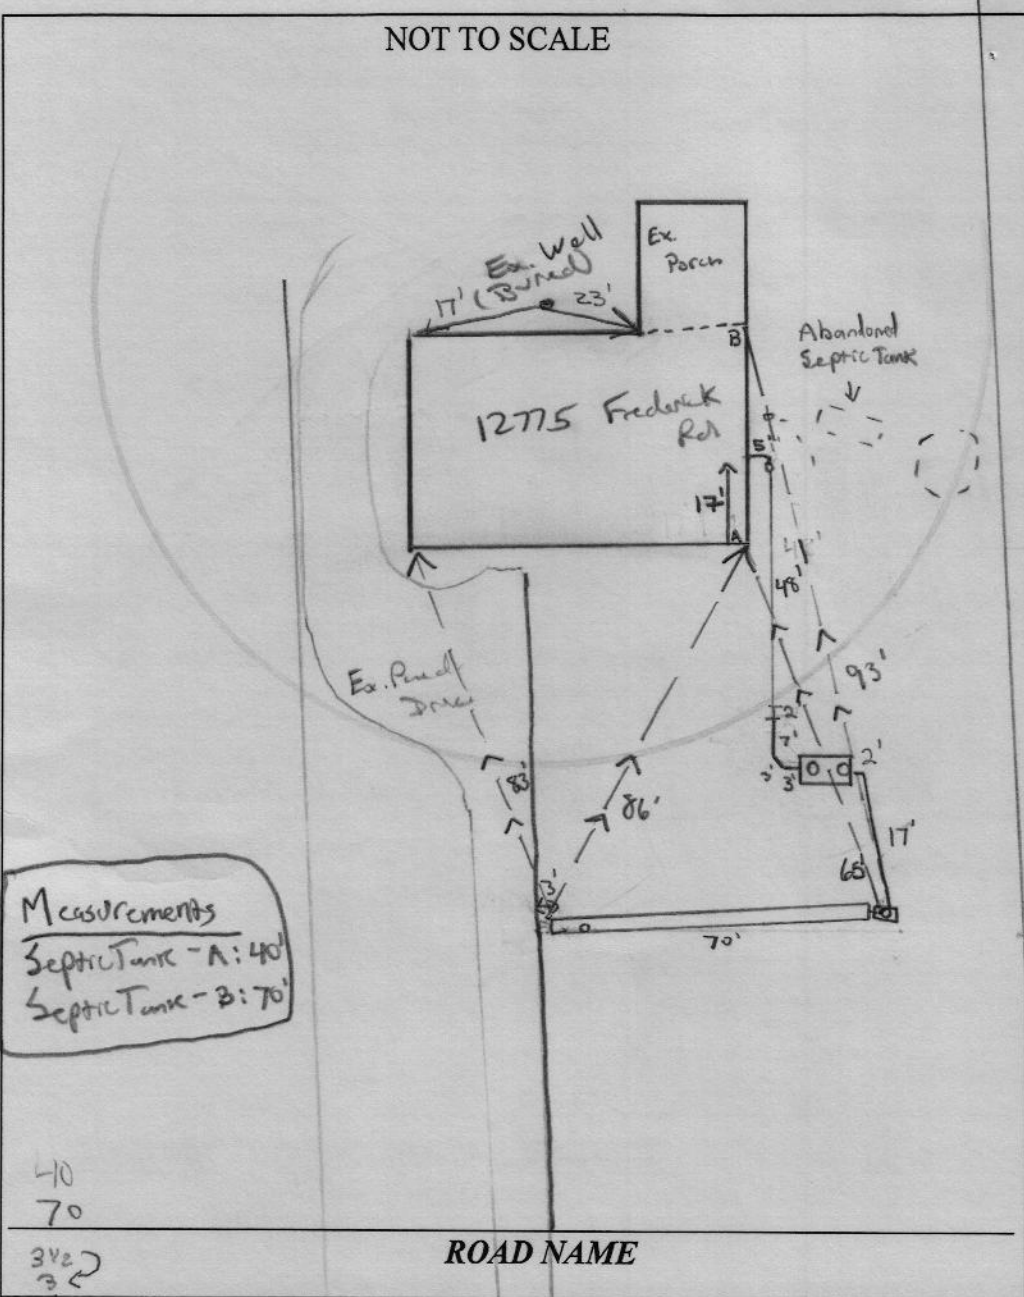 NOT TO SCALE
Ex. Well
(Buried)
17'
23'
Ex.
Porch
B
Abandoned
Septic Tank
12775 Frederick
Rd
5'
17'
A
48'
93'
Ex. Paved
Drive
2
7'
3'
3'
2'
83'
86'
17'
65'
3'
70'
Measurements
Septic Tank - A: 40'
Septic Tank - B: 70'
40
70
3 1/2
3
ROAD NAME